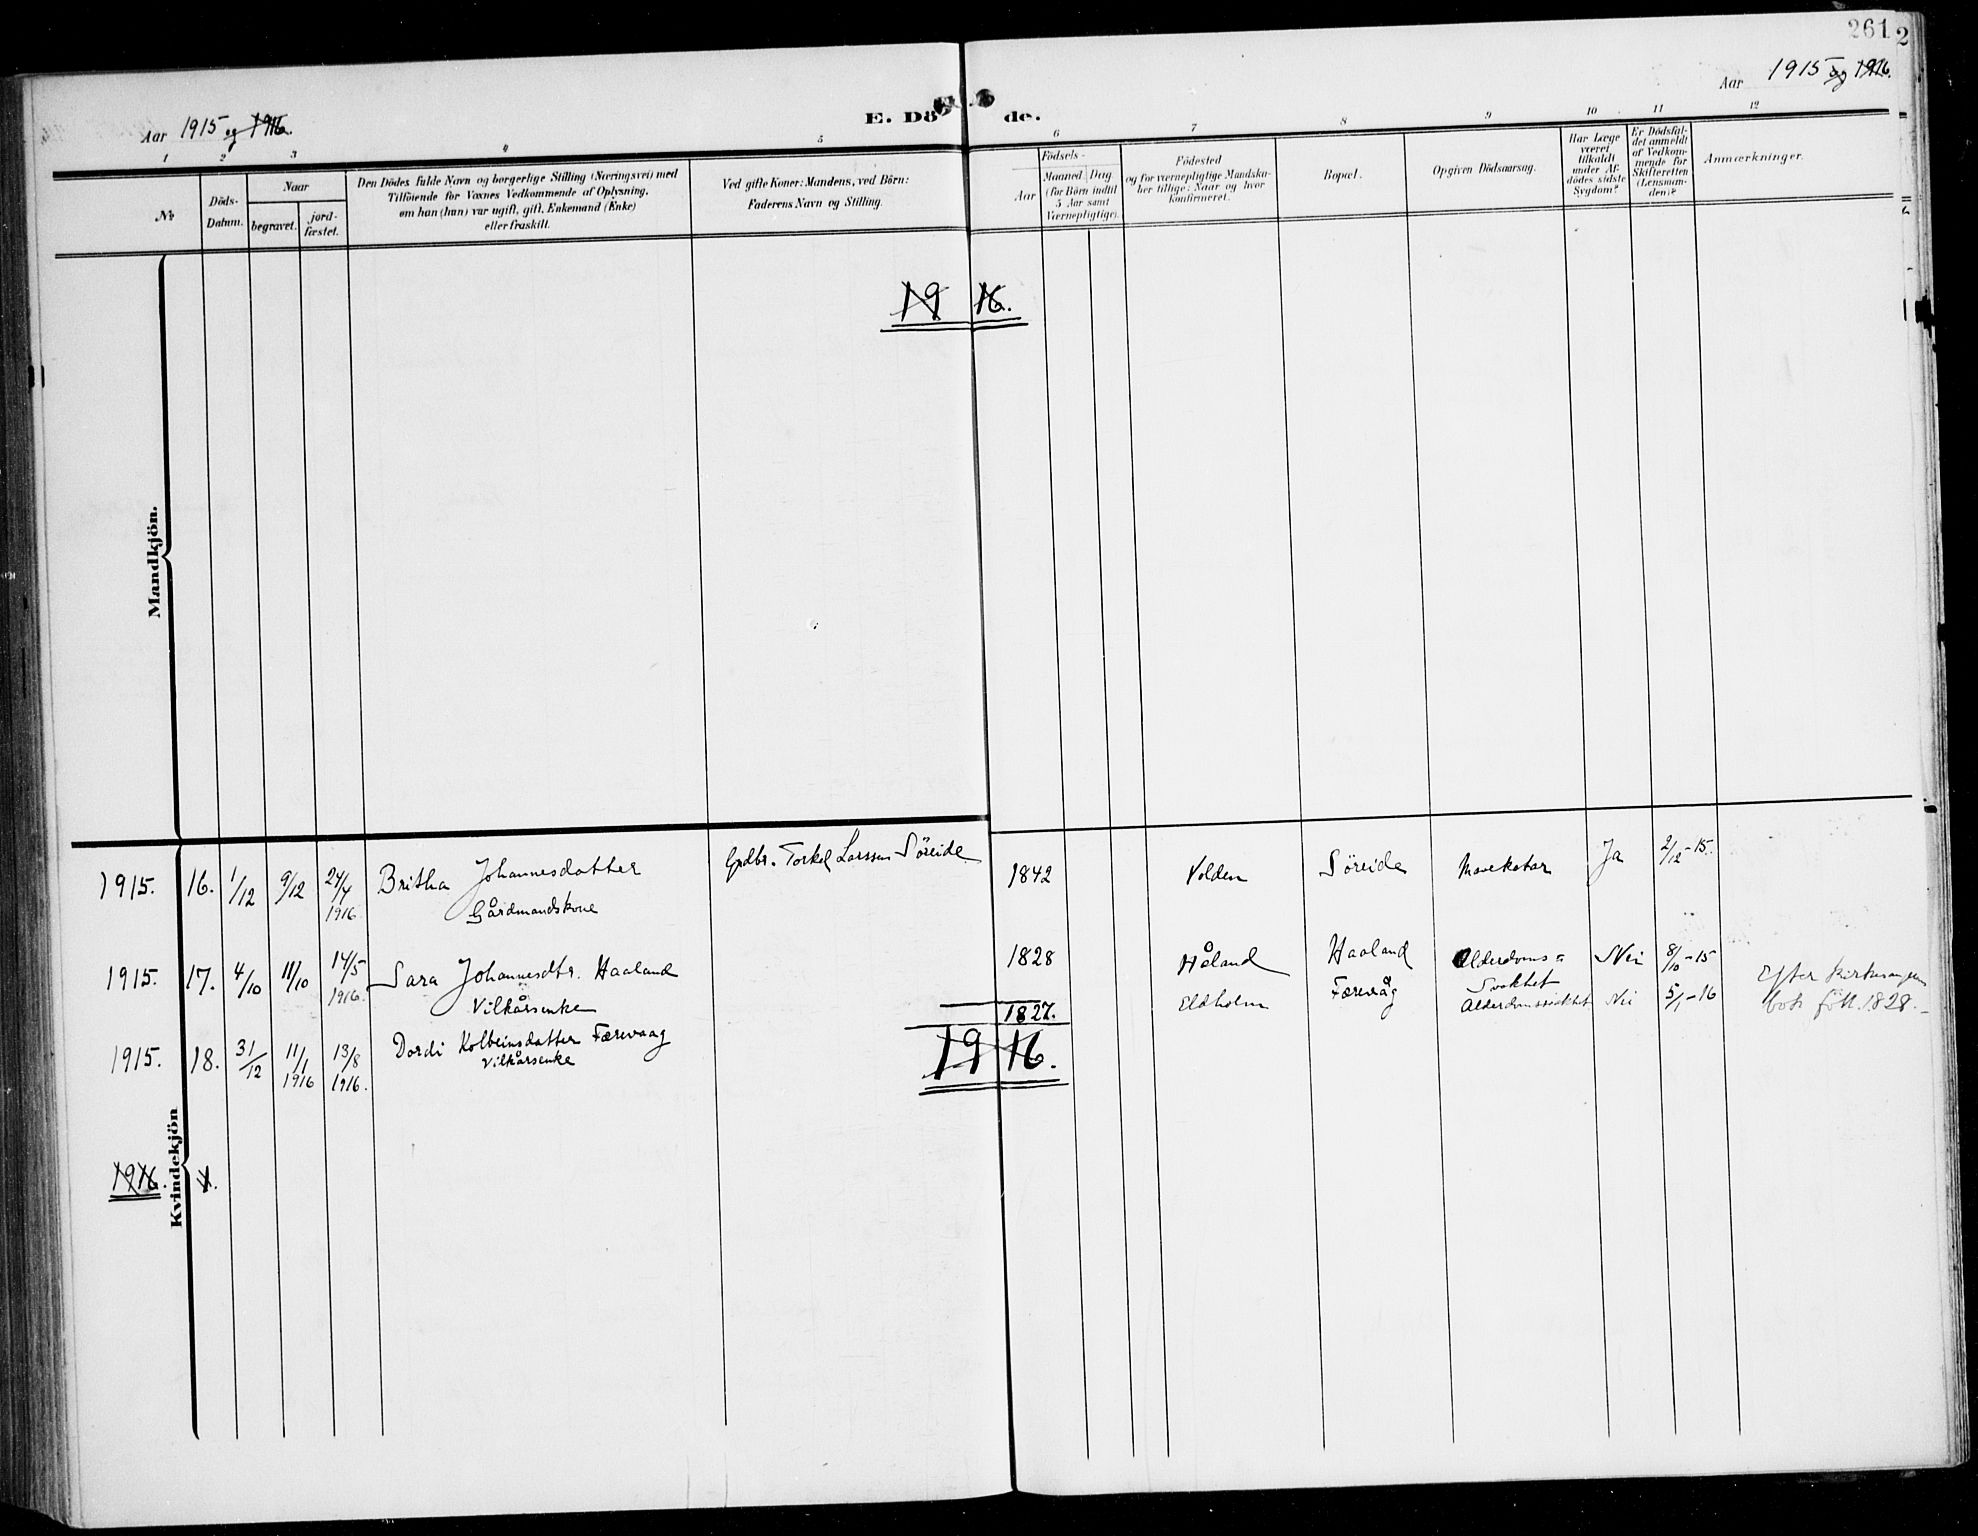 261
2
Aar 1915 og 1916.
E. Dö de.
Aar 1915 og 1916.
1 2 3 4 5 6 7 8 9 10 11 12
No
Döds-
Datum.
Naar
begravet.
jord-
fæstet.
Den Dödes fulde Navn og borgerlige Stilling (Næringsvei) med
Tilföiende for Voxnes Vedkommende af Oplysning,
om han (hun) var ugift, gift, Enkemand (Enke)
eller fraskilt.
Ved gifte Koner: Mandens, ved Börn:
Faderens Navn og Stilling.
Födsels-
Aar
Maaned Dag
(for Börn indtil
5 Aar samt
Værnepligtige).
Födested
og for værnepligtige Mandska-
ber tillige: Naar og hvor
konfirmeret.
Bopæl.
Opgiven Dödsaarsag.
Har Læge
været
tilkaldt
under Af-
dödes sidste
Sygdom?
Er Dödsfal-
det anmeldt
af Vedkom-
mende for
Skifteretten
(Lensman-
den)?
Anmærkninger.
Mandkjön.
19 16.
1915. 16. 1/12 9/12 24/4 1916 Britha Johannesdatter Gårdmandskone Grdbr. Torkel Larssen Söreide 1842 Volden Söreide Mavekatar Ja 2/12-15.
1915. 17. 4/10 11/10 14/5 1916. Sara Johannesdtr. Haaland Vilkårsenke 1828 Håland Haaland Alderdoms= Svakhet Nei 8/10-15
1915. 18. 31/12 11/1 1916 13/8 1916. Dordi Kolbeinsdatter Færevaag Vilkårsenke 1827. Eldholm Færevåg Alderdomssvakhet Nei 5/1-16 Efter
bok född 1828.
19 16.
Kvindekjön
1916. 1.